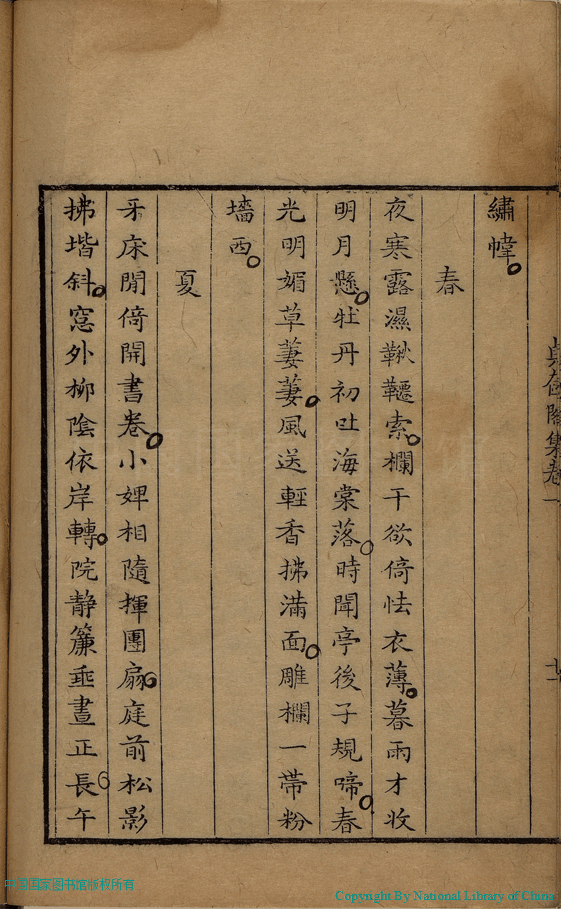 繡幃
春
夜寒露濕鞦韆索欄干欲倚怯衣薄暮雨才收
明月懸牡丹初吐海棠落時聞亭後子規啼春
光明媚草萋萋風送輕香拂滿面雕欄一帶粉
墻西
夏
牙床閒倚開書卷小婢相隨揮團扇庭前松影
拂堦斜窓外柳陰依岸轉院静簾垂晝正長午
中国国家图书馆版权所有
Copyright By National Library of China